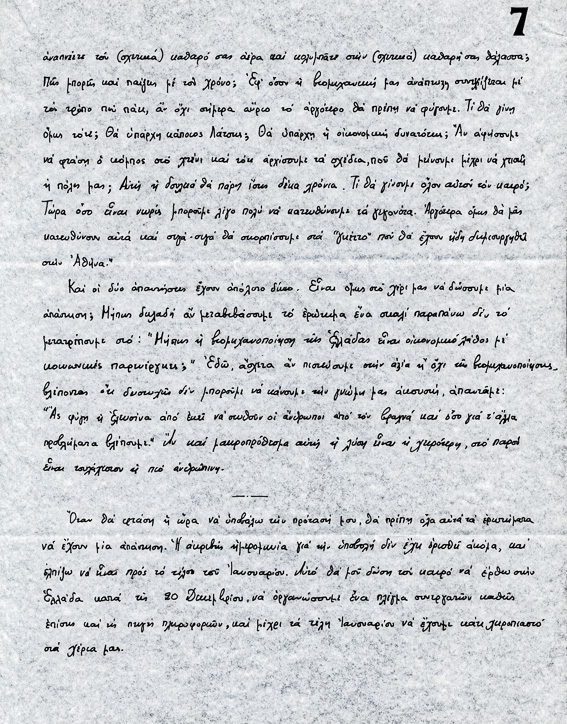 7
ἀναπνέετε τὸν (σχετικά) καθαρό σας ἀέρα καὶ κολυμπᾶτε στὴν (σχετικά) καθαρή σας θάλασσα;
Πῶς μπορῇς καὶ παίζῃς μὲ τὸν χρόνο; Ἐφ' ὅσον ἡ βιομηχανική μας ἀνάπτυξη συνεχίζεται μὲ
τὸν τρόπο ποὺ πάει, ἂν ὄχι σήμερα αὔριο τὸ ἀργότερο θὰ πρέπη νὰ φύγουμε. Τί θὰ γίνη
ὅμως τότε; Θὰ ὑπάρχη κάποιος Λάτσης; Θὰ ὑπάρχη ἡ οἰκονομική δυνατότης; Ἂν ἀφήσουμε
νὰ φτάση ὁ κόμπος στὸ χτένι καὶ τότε ἀρχίσουμε τὰ σχέδια, ποὺ θὰ μείνουμε μέχρι νὰ χτισθῇ
ἡ πόλη μας; Αὐτὴ ἡ δουλειὰ θὰ πάρη ἴσως δέκα χρόνια. Τί θὰ γίνουμε ὅλον αὐτὸν τὸν καιρό;
Τώρα ὅσο εἶναι νωρὶς μποροῦμε λίγο πολὺ νὰ κατευθύνουμε τὰ γεγονότα. Ἀργότερα ὅμως θὰ μᾶς
κατευθύνουν αὐτὰ καὶ σιγὰ-σιγὰ θὰ σκορπίσουμε στὰ "γκέττο" ποὺ θὰ ἔχουν ἤδη δημιουργηθῆ
στὴν Ἀθήνα."
Καὶ οἱ δύο ἀπαντήσεις ἔχουν ἀπόλυτο δίκιο. Εἶναι ὅμως στὸ χέρι μας νὰ δώσουμε μία
ἀπάντηση; Μήπως δηλαδὴ ἂν μεταβιβάσουμε τὸ ἐρώτημα ἕνα σκαλὶ παραπάνω δὲν τὸ
μετατρέπουμε στό: "Μήπως ἡ βιομηχανοποίηση τῆς Ἑλλάδας εἶναι οἰκονομικὸ λάθος μὲ
κοινωνικὲς παρενέργειες;" Ἐδῶ, ἄσχετα ἂν πιστεύουμε στὴν ἀξία ἢ ὄχι τῆς βιομηχανοποίησης,
βλέποντας ὅτι δυστυχῶς δὲν μποροῦμε νὰ κάνουμε τὴν γνώμη μας ἀκουστή, ἀπαντᾶμε:
"Ἂς φύγη ἡ Ἐλευσίνα ἀπὸ ἐκεῖ νὰ σωθοῦν οἱ ἄνθρωποι ἀπὸ τὸν βραχνᾶ καὶ ὅσο γιὰ τ' ἄλλα
προβλήματα βλέπουμε." Ἂν καὶ μακροπρόθεσμα αὐτὴ ἡ λύση εἶναι ἡ χειρότερη, στὸ παρὸν
εἶναι τουλάχιστον ἡ πιὸ ἀνθρώπινη.
Ὅταν θὰ φτάση ἡ ὥρα νὰ ὑποβάλω τὴν πρότασή μου, θὰ πρέπη ὅλα αὐτὰ τὰ ἐρωτήματα
νὰ ἔχουν μία ἀπάντηση. Ἡ ἀκριβὴς ἡμερομηνία γιὰ τὴν ὑποβολὴ δὲν ἔχει ὁρισθῆ ἀκόμα, καὶ
ἐλπίζω νὰ εἶναι πρὸς τὸ τέλος τοῦ Ἰανουαρίου. Αὐτὸ θὰ μοῦ δώση τὸν καιρὸ νὰ ἔρθω στὴν
Ἑλλάδα κατὰ τὶς 20 Δεκεμβρίου, νὰ ὀργανώσουμε ἕνα πλέγμα συνεργατῶν καθὼς
ἐπίσης καὶ τὶς πηγὲς πληροφοριῶν, καὶ μέχρι τὰ τέλη Ἰανουαρίου νὰ ἔχουμε κάτι χειροπιαστὸ
στὰ χέρια μας.